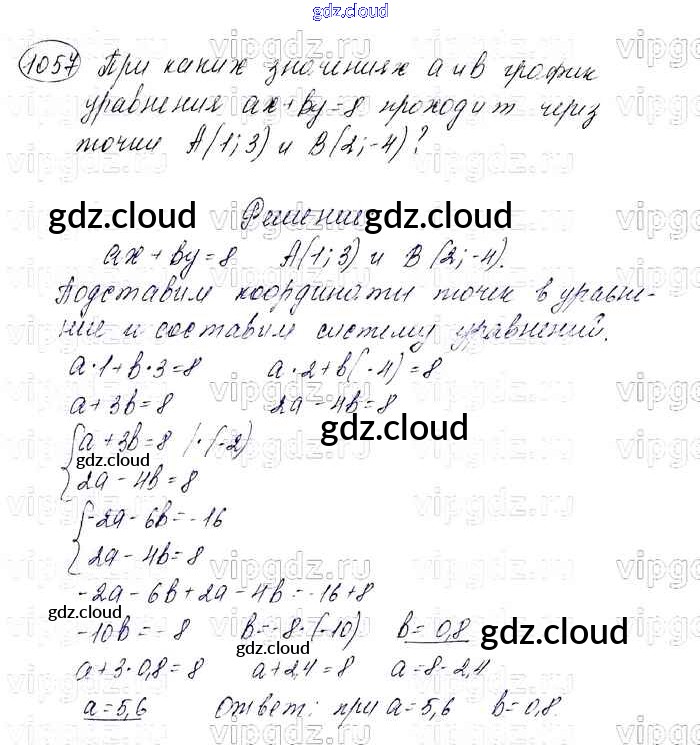 gdz.cloud
1057 При каких значениях a и b график
уравнения ax+by=8 проходит через
точки A(1;3) и B(2;-4)?
gdz.cloud Решение gdz.cloud
ax+by=8 A(1;3) и B(2;-4).
Подставим координаты точек в уравне-
ние и составим систему уравнений.
a·1+b·3=8 a·2+b(-4)=8
a+3b=8 2a-4b=8
gdz.cloud
{a+3b=8 |·(-2)
gdz.cloud
2a-4b=8
{-2a-6b=-16
2a-4b=8
-2a-6b+2a-4b=-16+8
gdz.cloud
-10b=-8 b=-8·(-10) b=0,8 gdz.cloud
gdz.cloud
a+3·0,8=8 a+2,4=8 a=8-2,4
a=5,6 Ответ: при a=5,6 b=0,8.